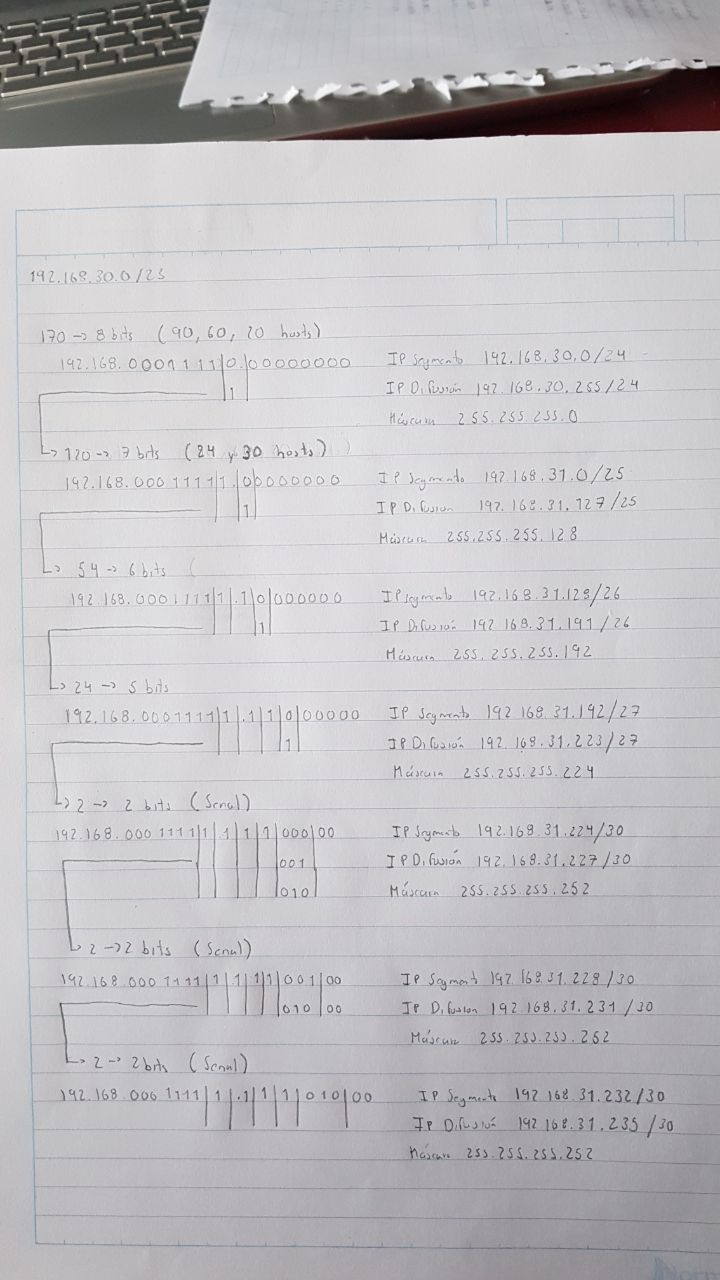 192.168.30.0/23
170 → 8 bits (90, 60, 20 hosts)
192.168.0001111|0.|00000000 IP Segmento 192.168.30.0/24
1 IP Difusión 192.168.30.255/24
Máscara 255.255.255.0
↳ 120 → 7 bits (84 y 30 hosts)
192.168.0001111|1.|0|0000000 IP Segmento 192.168.31.0/25
1 IP Difusión 192.168.31.127/25
Máscara 255.255.255.128
↳ 54 → 6 bits (
192.168.0001111|1|.1|0|000000 IP Segmento 192.168.31.128/26
1 IP Difusión 192.168.31.191/26
Máscara 255.255.255.192
↳ 24 → 5 bits
192.168.0001111|1|.1|1|0|00000 IP Segmento 192.168.31.192/27
1 IP Difusión 192.168.31.223/27
Máscara 255.255.255.224
↳ 2 → 2 bits (Serial)
192.168.0001111|1|.1|1|1|000|00 IP Segmento 192.168.31.224/30
001 IP Difusión 192.168.31.227/30
010 Máscara 255.255.255.252
↳ 2 → 2 bits (Serial)
192.168.0001111|1|1|1|1|001|00 IP Segment 192.168.31.228/30
010|00 IP Difusion 192.168.31.231/30
Máscara 255.255.255.252
↳ 2 → 2 bits (Serial)
192.168.0001111|1|.1|1|1|010|00 IP Segmento 192.168.31.232/30
IP Difusión 192.168.31.235/30
Máscara 255.255.255.252